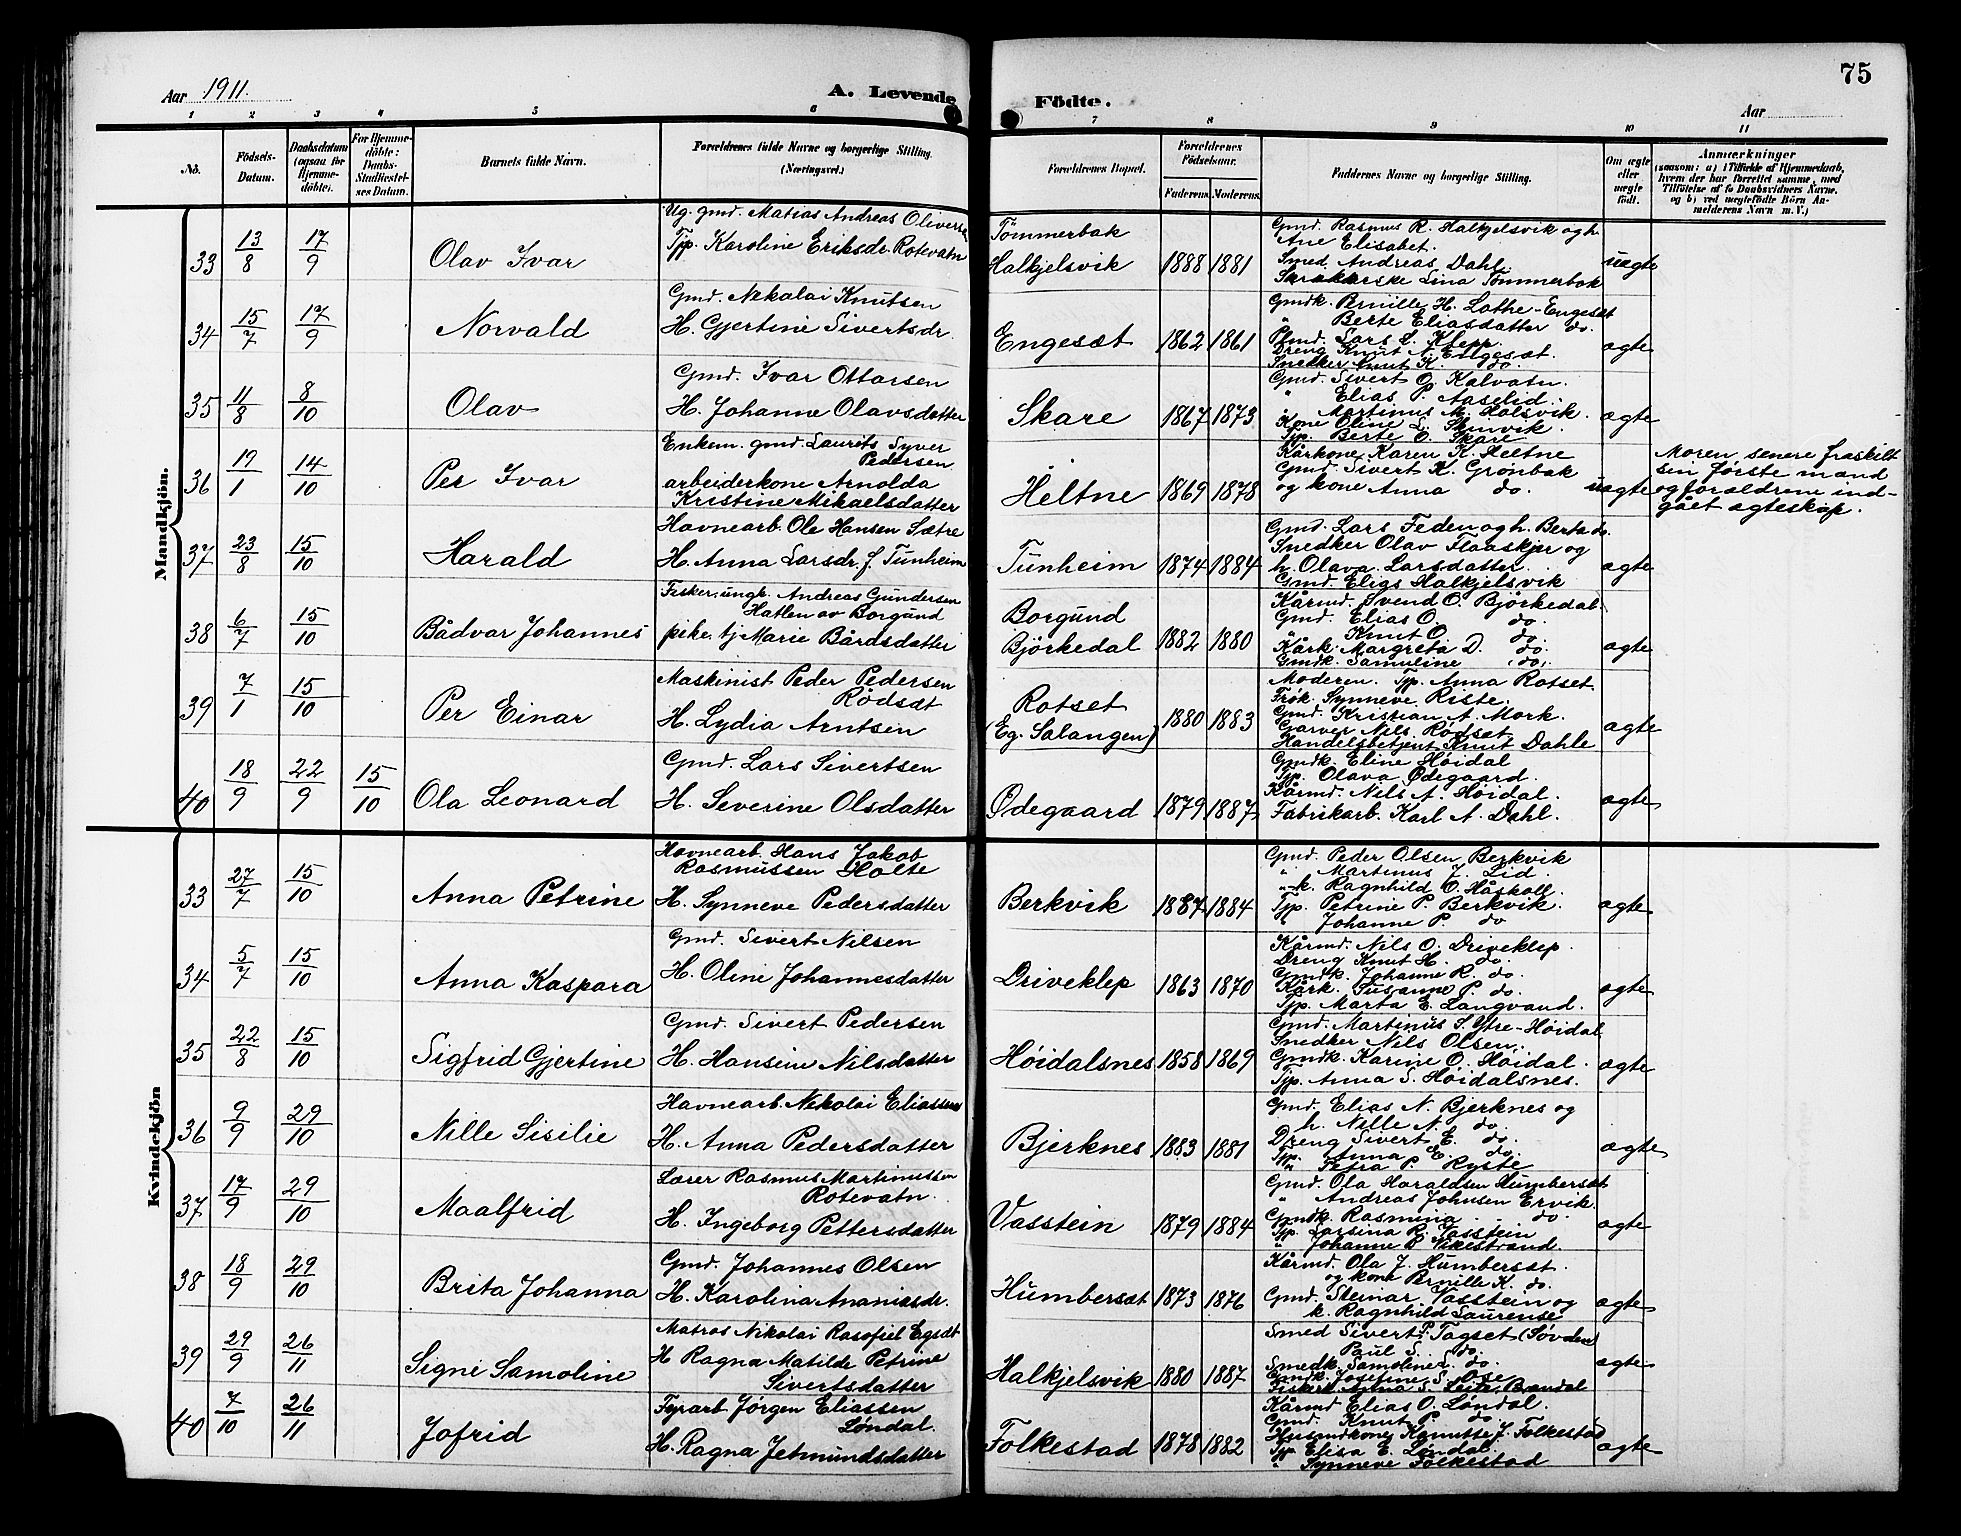 75
Aar 1911.
A. Levende Födte.
Aar
1 2 3 4 5 6 7 8 9 10 11
No.
Födsels-Datum.
Daabsdatum (ogsaa for Hjemmedöbte).
For Hjemmedöbte: Daabs-Stadfæstelses Datum.
Barnets fulde Navn.
Forældrenes fulde Navne og borgerlige Stilling. (Næringsvei.)
Forældrenes Bopæl.
Forældrenes Födselsaar. Faderens Moderens
Faddernes Navne og borgerlige Stilling.
Om ægte eller uægte födt.
Anmærkninger (saasom: a) i Tilfælde af Hjemmedaab, hvem der har forrettet samme, med Tilföielse af to Daabsvidners Navne, og b) ved uægtefödte Börn Anmelderens Navn m. V.)
Mandkjön.
33 13/8 17/9 Olav Ivar
Ug. gmd. Matias Andreas Oliversen
Tjp. Karoline Eriksdr. Rotevatn
Tømmerbak
Halkjelsvik 1888 1881
Gmd. Rasmus R. Halkjelsvik og h.
Ane Elisabet.
Smed. Andreas Dahl.
Lina Tømmerbak
uægte
34 15/7 17/9 Norvald
Gmd. Nekolai Knutsen
H. Gjertine Sivertsdr.
Engesæt 1862 1861
Gmdk. Pernille H. Lothe-Engesæt
" Berte Eliasdatter do.
Lars L. Klepp.
Dreng Knut N. Engesæt.
Snedker Knut K. do.
ægte
35 11/8 8/10 Olav
Gmd. Ivar Ottarsen
H. Johanne Olavsdatter
Skare 1867 1873
Gmd. Sivert O. Kalvatn.
" Elias P. Aaselid.
" Martinus M. Halsvik.
Kone Oline L. Skinvik.
Tjp. Berte O. Skare
ægte
36 17/1 14/10 Per Ivar
Enkem. gmd. Laurits Syver
Pedersen
arbeiderkone Arnolda
Kristine Mikaelsdatter
Heltne 1869 1878
Kårkone Karen K. Heltne
Gmd. Sivert K. Grønbak
og kone Anna do.
uægte
Moren senere fraskilt
sin første mand
og forældrene ind-
gået ægteskap.
37 23/8 15/10 Harald
Havnearb. Ole Hansen Sætre
H. Anna Larsdr. f. Tunheim
Tunheim 1874 1884
Gmd. Lars Feden og h. Berta do.
Snedker Olav Flaaskjer og
h. Olava Larsdatter.
Gmd. Elias Halkjelsvik
ægte
38 6/7 15/10 Bådvar Johannes
Fisker, ungk. Andreas Gundersen
Hatlen av Borgund
pike, tj Marie Bårdsdatter
Borgund
Björkedal 1882 1880
Kårmd. Svend O. Björkedal.
Gmd. Elias O. do.
" Knut O. do.
Kårk. Margreta D. do.
Gmdk. Samuline do.
ægte
39 7/1 15/10 Per Einar
Maskinist Peder Pedersen
Rödsæt
H. Lydia Arntsen
Rotset
(Eg. Salangen) 1880 1883
Moderen. Tjp. Anna Rotset.
Frøk. Synneve Riste.
Gmd. Kristian A. Mork.
Garver Nils Rödsæt
Handelsbetjent Knut Dahle
ægte
40 18/9 22/9 15/10 Ola Leonard
Gmd. Lars Sivertsen
H. Severine Olsdatter
Ødegaard 1879 1887
Gmdk. Eline Høidal
Tjp. Olava Ødegaard.
Kårmd. Nils A. Høidal.
Fabrikarb. Karl A. Dahl.
ægte
Kvindekjön
33 27/7 15/10 Anna Petrine
Havnearb. Hans Jakob
Rasmussen Holte
H. Synneve Pedersdatter
Berkvik 1887 1884
Gmd. Peder Olsen Berkvik
" Martinus J. Lid.
" k. Ragnhild O. Håskoll.
Tjp. Petrine P. Berkvik.
" Johanne P. do
ægte
34 5/7 15/10 Anna Kaspara
Gmd. Sivert Nilsen
H. Oline Johannesdatter
Driveklep 1863 1870
Kårmd. Nils O. Driveklep.
Dreng Knut H. do.
Gmdk. Johanne R. do.
Kårk. Susanne P. do.
Tjp. Marta E. Langvand.
ægte
35 22/8 15/10 Sigfrid Gjertine
Gmd. Sivert Pedersen
H. Hansine Nilsdatter
Høidalsnes 1858 1869
Gmd. Martinus S. Ytre-Høidal
Snedker Nils Olsen.
Gmdk. Karine O. Høidal.
Tjp. Anna S. Høidalsnes.
ægte
36 9/9 29/10 Nille Sisilie
Havnearb. Nikolai Eliassen
H. Anna Pedersdatter
Bjerknes 1883 1881
Gmd. Elias N. Bjerknes og
h. Nille N. do.
Dreng Sivert E. do.
Tjp. Anna E. do.
" Petra P. Ryste
ægte
37 17/9 29/10 Maalfrid
Lærer Rasmus Martinussen
Rotevatn.
H. Ingeborg Pettersdatter
Vasstein 1879 1884
Gmd. Ola Haraldsen Humbersæt
" Andreas Johnsen Ervik.
Gmdk. Rasmina do.
Tjp. Larsina R. Vasstein
" Johanne P. Vikestrand.
ægte
38 18/9 29/10 Brita Johanna
Gmd. Johannes Olsen
H. Karolina Ananiasdr.
Humbersæt 1873 1876
Kårmd. Ola J. Humbersæt.
og kone Pernille K. do.
Gmd. Steinar Vasstein og
k. Ragnhild Laurense
ægte
39 29/9 26/11 Signe Samoline
Matros Nikolai Rasofiel Egsæt
H Ragna Matilde Petrine
Sivertsdatter
Halkjelsvik 1880 1887
Smed Sivert P. Tagset (Søvden)
Paul S. do.
Smedk. Samoline L. do.
Gmdk. Josefine S. Ose
Anna S.
ægte
40 7/10 26/11 Jofrid
Fyrarb Jørgen Eliassen
Løndal.
H. Ragna Jetmundsdatter
Folkestad 1878 1882
Kårmd Elias O. Løndal.
Gmd. Knut P. do
Husmdkone Hamutte J. Folkestad
Tjp. Elisa E. Løndal.
" Synneve Folkestad
ægte